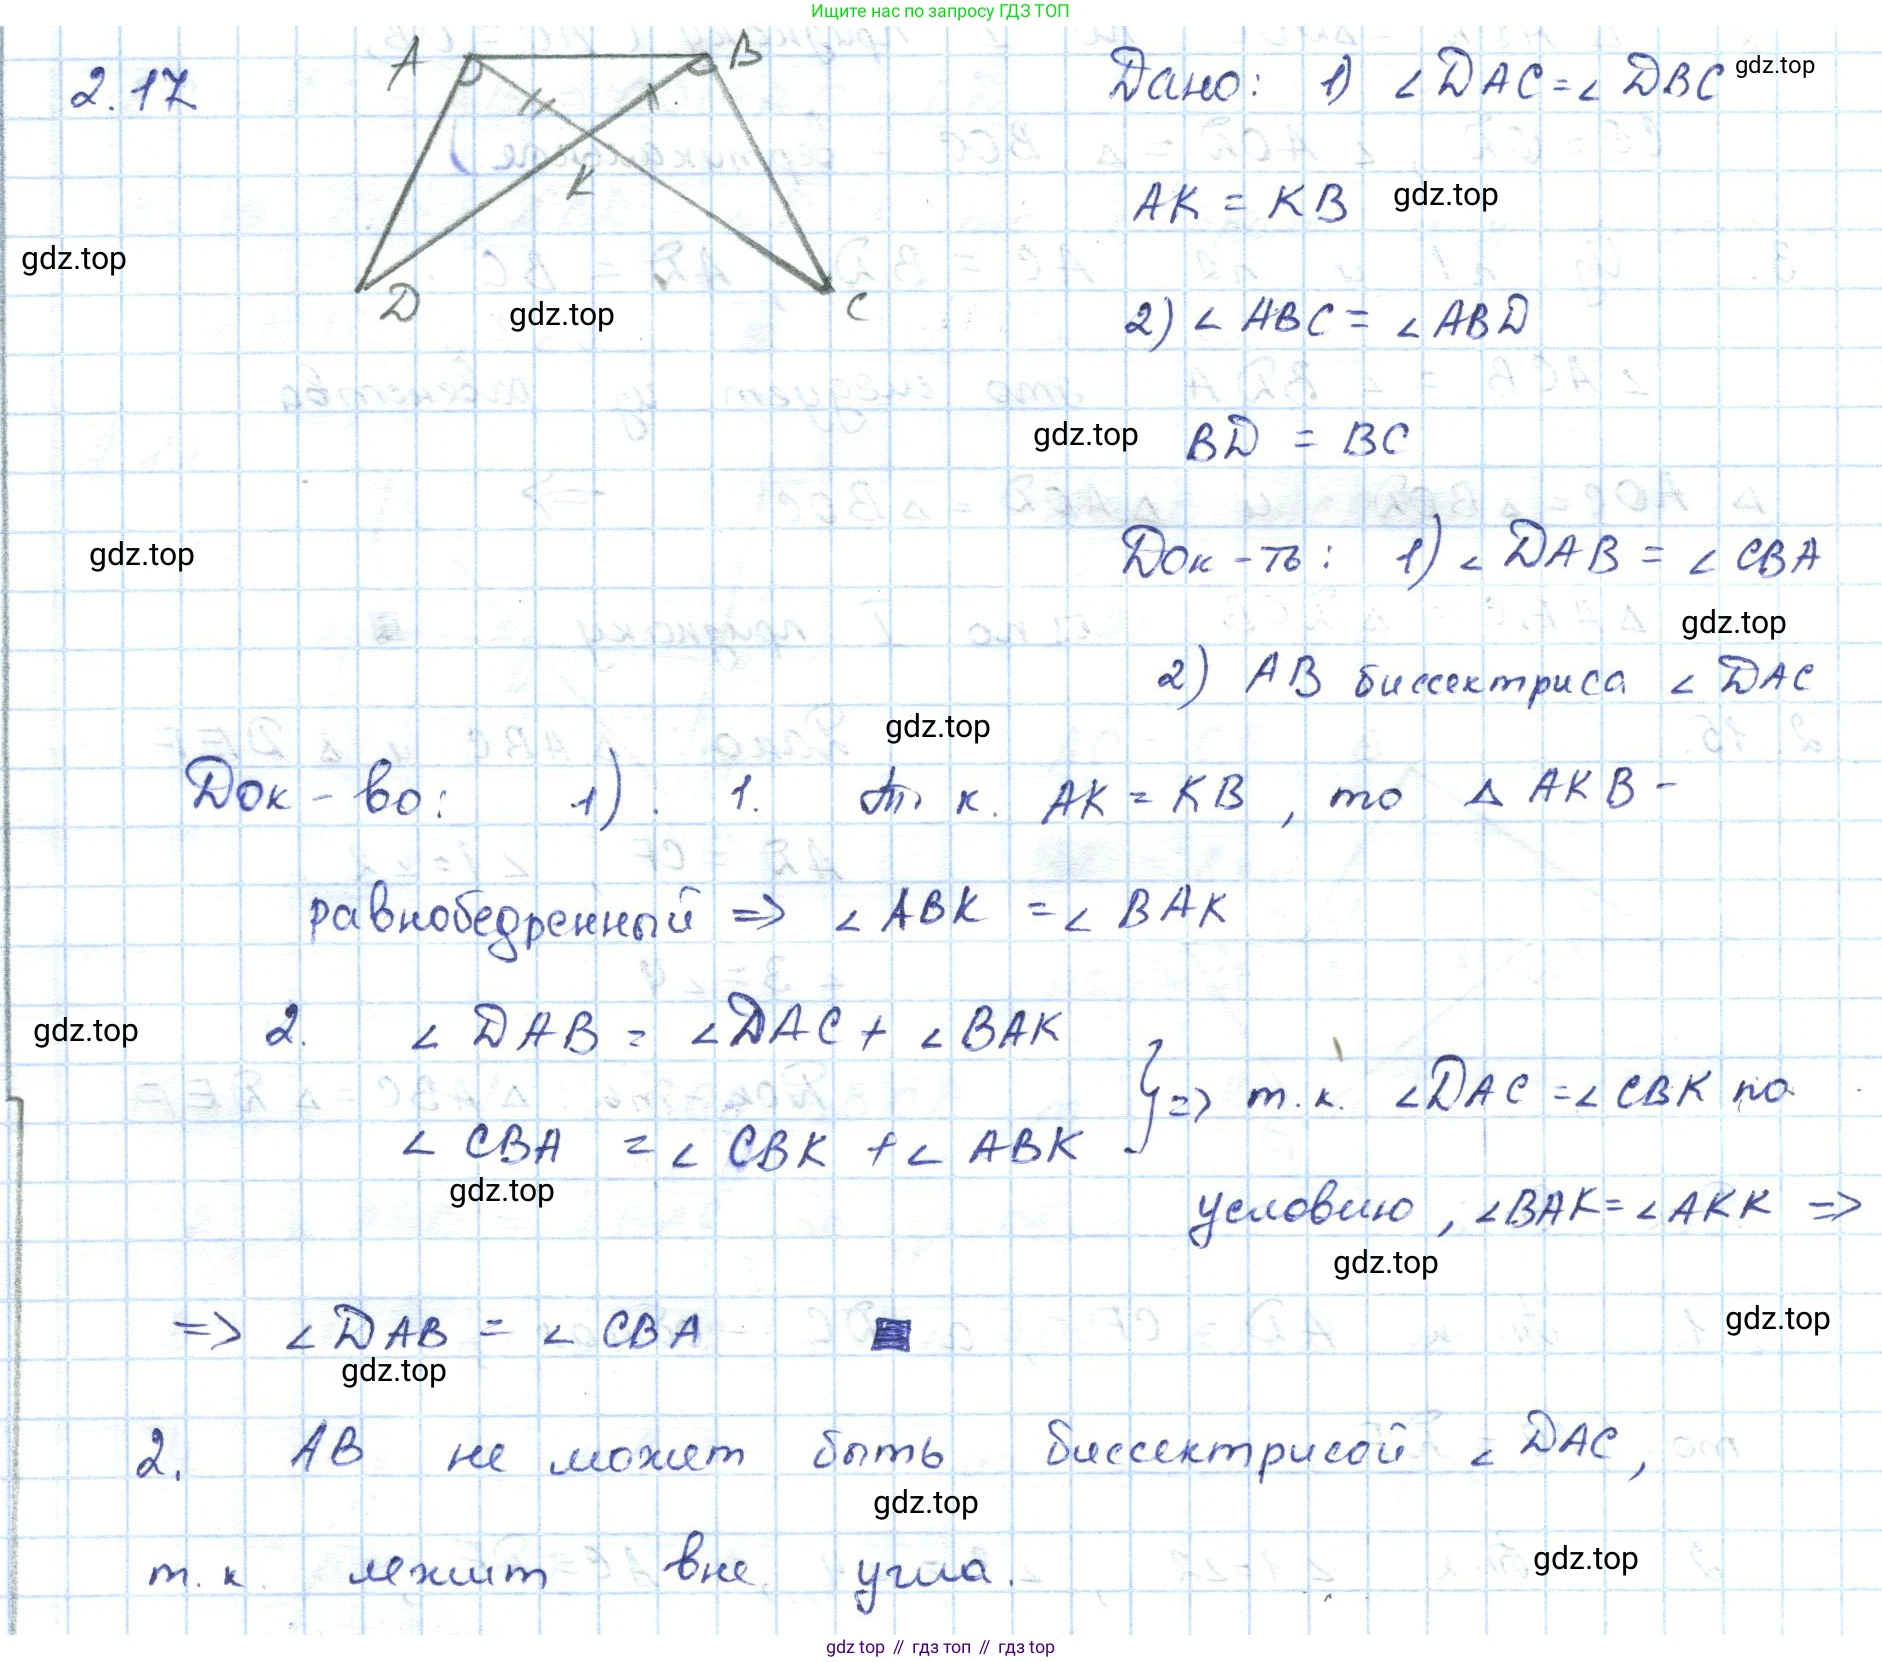 Ищите нас по запросу ГДЗ ТОП
2.17
A B
K
D C
Дано: 1) ∠DAC = ∠DBC gdz.top
AK = KB gdz.top
gdz.top
gdz.top
2) ∠ABC = ∠ABD
gdz.top BD = BC
gdz.top
Док-ть: 1) ∠DAB = ∠CBA
gdz.top
2) AB биссектриса ∠DAC
gdz.top
Док-во: 1). 1. Т. к. AK = KB, то △ AKB -
равнобедренный => ∠ABK = ∠BAK
gdz.top 2. ∠DAB = ∠DAC + ∠BAK
∠CBA = ∠CBK + ∠ABK } => т.к. ∠DAC = ∠CBK по
gdz.top
условию, ∠BAK = ∠AKK =>
gdz.top
=> ∠DAB = ∠CBA
gdz.top
gdz.top
2. AB не может быть биссектрисой ∠DAC,
gdz.top
т.к. лежит вне угла.
gdz.top
gdz top // гдз топ // гдз top